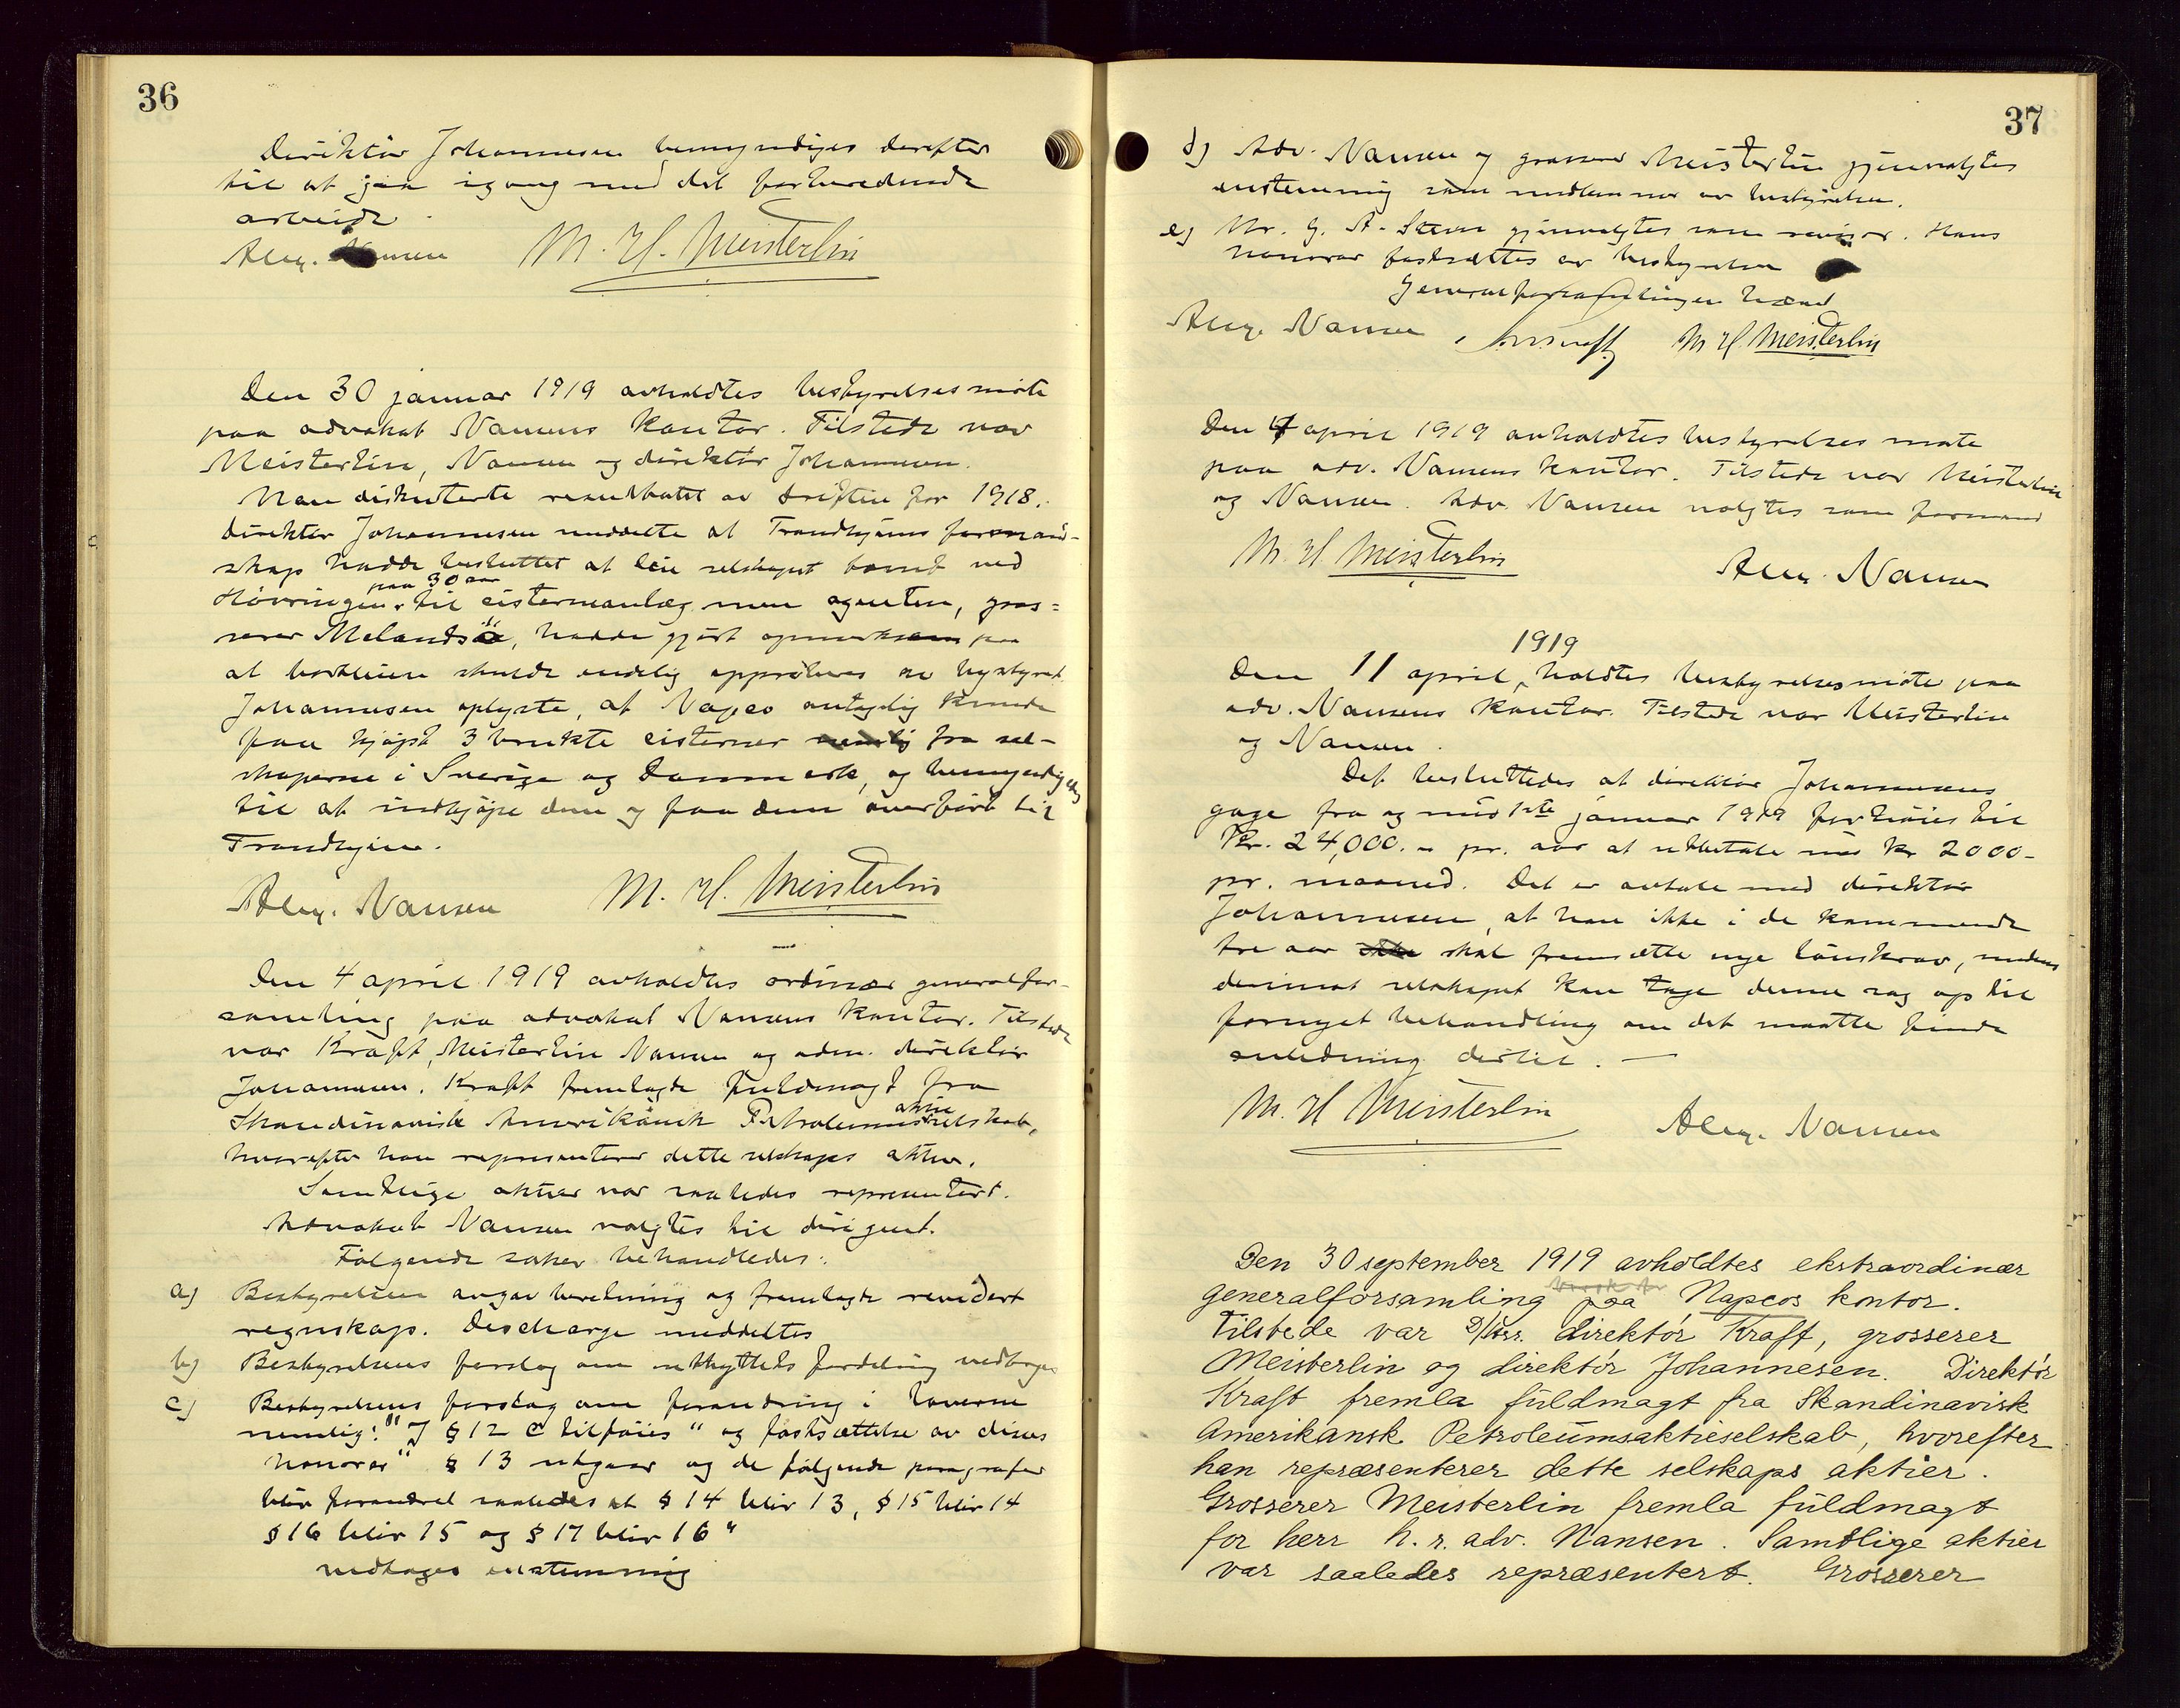 36
Direktör Johannesen bemyndiges derefter
til at gaa igang med det forberedende
arbeide.
Alex. Nansen M. H. Meisterlin
Den 30 januar 1919 avholdtes bestyrelsesmöte
paa advokat Nansens kontor. Tilstede var
Meisterlin, Nansen og direktör Johannesen.
Man diskuterte resultatet av driften for 1918.
Direktör Johannesen meddelte at Trondhjems formand-
skap hadde besluttet at leie selskapet tomt ved
paa 30 aar
Hövringen til cisterneanlæg men agenten, gros-
serer Melandsö, hadde gjort opmerksom paa
at bortleien skulde endelig approberes av bystyret.
Johannesen oplyste, at Napco antagelig kunde
faa kjöpt 3 brukte cisterner fra sel-
skaperne i Sverige og Danmark, og bemyndiges
til at indkjöpe dem og faa dem överfört til
Trondhjem.
Alex. Nansen M. H. Meisterlin
Den 4 april 1919 avholdtes ordinær generalfor-
samling paa advokat Nansens kontor. Tilstede
var Kraft, Meisterlin Nansen og adm. direktör
Johannesen. Kraft fremlagde fuldmagt fra
aktie
Skandinavisk Amerikansk Petroleumsselskab,
hvorefter han representerer dette selskaps aktier.
Samtlige aktier var saaledes representert.
Advokat Nansen valgtes til dirigent.
Fölgende saker behandledes:
a) Bestyrelsen avgav beretning og fremlagde revidert
regnskap. Decharge meddeltes
b) Bestyrelsens forslag om utbyttets fordeling vedtoges
c) Bestyrelsens forslag om forandring i lovene
nemlig: "I § 12 c tilföies "og fastsættelse av dennes
honorar" § 13 utgaar og de fölgende paragrafer
blir forandret saaledes at § 14 blir 13, § 15 blir 14
§ 16 blir 15 og § 17 blir 16"
vedtoges enstemmig
37
d) Adv. Nansen og grosserer Meisterlin gjenvalgtes
enstemmig som medlemmer av bestyrelsen.
e) Mr. G. A. gjenvalgtes som revisor. Hans
honorar fastsættes av bestyrelsen
Generalforsamlingen hævet
Alex. Nansen M H Meisterlin
Den 4 april 1919 avholdtes bestyrelsesmöte
paa adv. Nansens kontor. Tilstede var Meisterlin
og Nansen. Adv. Nansen valgtes som formand
M. H Meisterlin Alex. Nansen
1919
Den 11 april, holdtes bestyrelsesmöte paa
adv. Nansens kontor. Tilstede var Meisterlin
og Nansen.
Det besluttedes at direktör Johannesens
gage fra og med 1ste januar 1919 forhöies til
Kr. 24,000.- pr. aar at utbetale med kr 2000-
pr. maaned. Det er avtale med direktör
Johannesen, at han ikke i de kommende
tre aar skal fremsætte nye lönskrav, medens
derimot selskapet kan tage denne sag op til
fornyet behandling om det maatte finde
anledning dertil. —
M. H Meisterlin Alex. Nansen
Den 30 september 1919 avholdtes ekstraordinær
generalforsamling paa Napcos kontor.
Tilstede var direktör Kraft, grosserer
Meisterlin og direktör Johannesen. Direktör
Kraft fremla fuldmagt fra Skandinavisk
Amerikansk Petroleumsaktieselskab, hvorefter
han repræsenterer dette selskaps aktier.
Grosserer Meisterlin fremla fuldmagt
for herr h. r. adv. Nansen. Samtlige aktier
var saaledes repræsentert. Grosserer